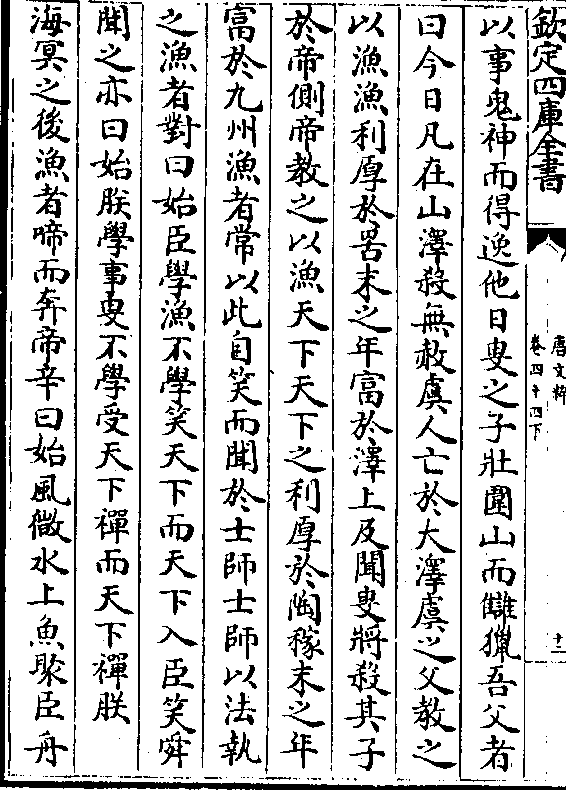 欽定四庫全書
唐文粹
卷四十四下
十二
以事鬼神而得逸他日叟之子壯圍山而讎獵吾父者
曰今日凡在山澤殺無赦虞人亡於大澤虞之父教之
以漁漁利厚於罟末之年富於澤上及聞叟將殺其子
於帝側帝教之以漁天下天下之利厚於陶稼末之年
富於九州漁者常以此自笑而聞於士師士師以法執
之漁者對曰始臣學漁不學笑天下而天下入臣笑舜
聞之亦曰始朕學事叟不學受天下禪而天下禪朕
海㝠之後漁者啼而奔帝辛曰始風微水上魚聚臣舟